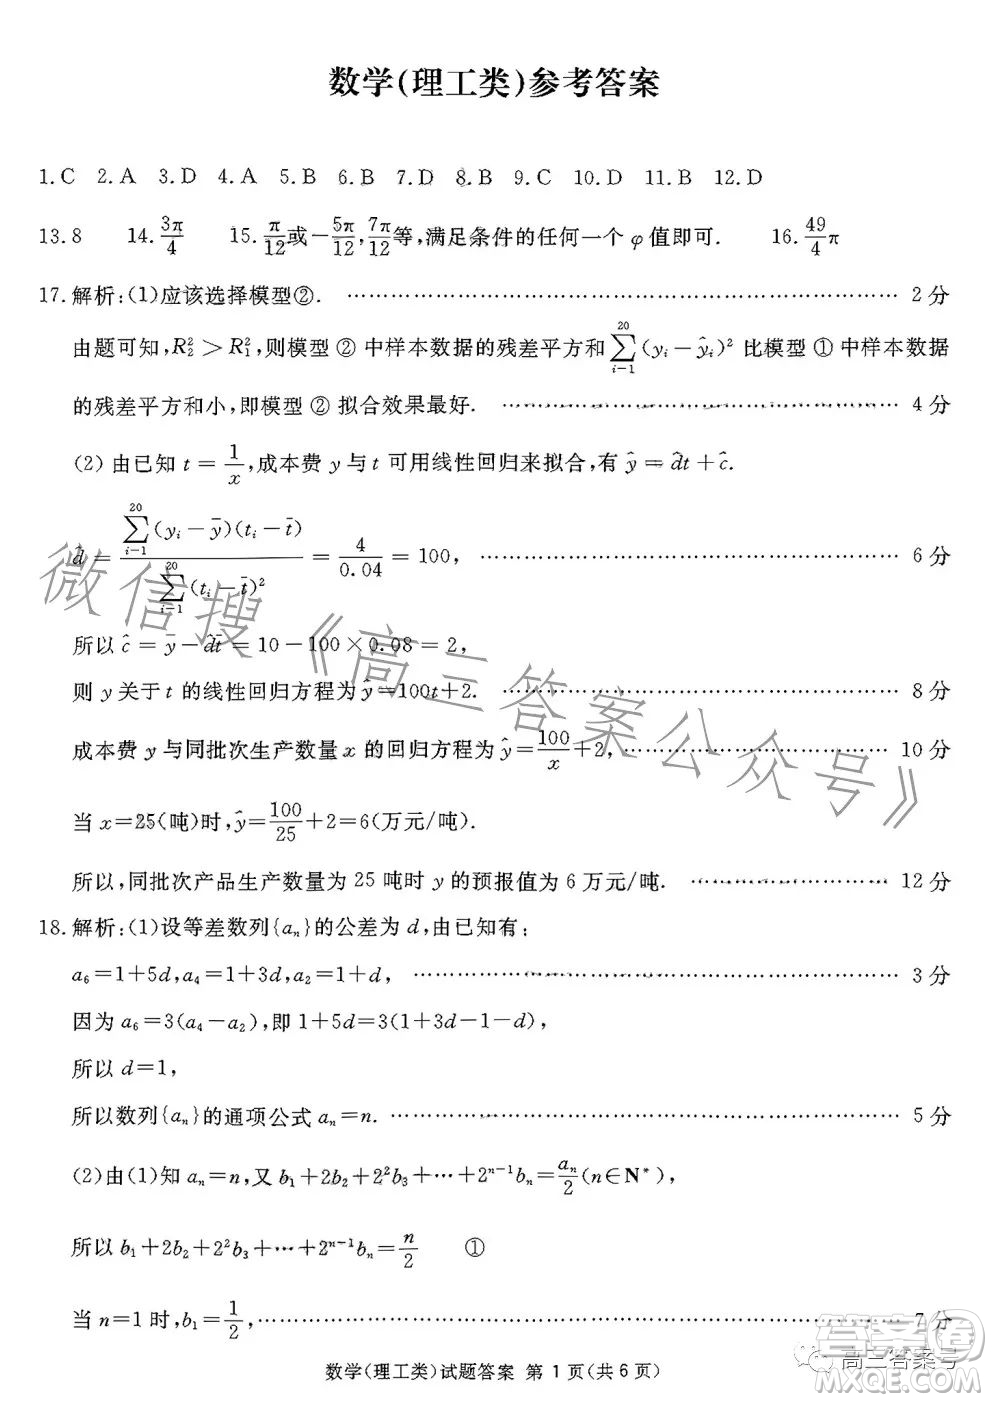 数学(理工类)参考答案
1.C 2.A 3.D 4.A 5.B 6.B 7.D 8.B 9.C 10.D 11.B 12.D
13.8 14.3π/4 15.π/12或-5π/12,7π/12等,满足条件的任何一个 φ 值即可. 16.49/4π
17.解析:(1)应该选择模型②. ………… 2 分
由题可知,R₂²>R₁²,则模型 ② 中样本数据的残差平方和∑_{i-1}^{20}(yᵢ-ŷᵢ)² 比模型 ① 中样本数据
的残差平方和小,即模型 ② 拟合效果最好. ………… 4 分
(2) 由已知 t=1/x,成本费 y 与 t 可用线性回归来拟合,有 ŷ=d̂t+ĉ.
d̂=∑_{i-1}^{20}(yᵢ-ȳ)(tᵢ-t̄)/∑_{i-1}^{20}(tᵢ-t̄)²=4/0.04=100, ………… 6 分
所以 ĉ=ȳ-d̂t̄=10-100×0.08=2,
则 y 关于 t 的线性回归方程为 ŷ=100t+2. ………… 8 分
成本费 y 与同批次生产数量 x 的回归方程为 ŷ=100/x+2, ………… 10 分
当 x=25(吨)时,ŷ=100/25+2=6(万元/吨).
所以,同批次产品生产数量为 25 吨时 y 的预报值为 6 万元/吨. ………… 12 分
18.解析:(1)设等差数列{aₙ}的公差为 d,由已知有:
a₆=1+5d,a₄=1+3d,a₂=1+d, ………… 3 分
因为 a₆=3(a₄-a₂),即 1+5d=3(1+3d-1-d),
所以 d=1,
所以数列{aₙ}的通项公式 aₙ=n. ………… 5 分
(2)由(1)知 aₙ=n,又 b₁+2b₂+2²b₃+…+2ⁿ⁻¹bₙ=aₙ/2(n∈N*),
所以 b₁+2b₂+2²b₃+…+2ⁿ⁻¹bₙ=n/2 ①
当 n=1 时,b₁=1/2, ………… 7 分
数学(理工类)试题答案 第 1 页(共 6 页)
微信搜《高三答案公众号》
高三答案号
答案圈
MXQE.COM